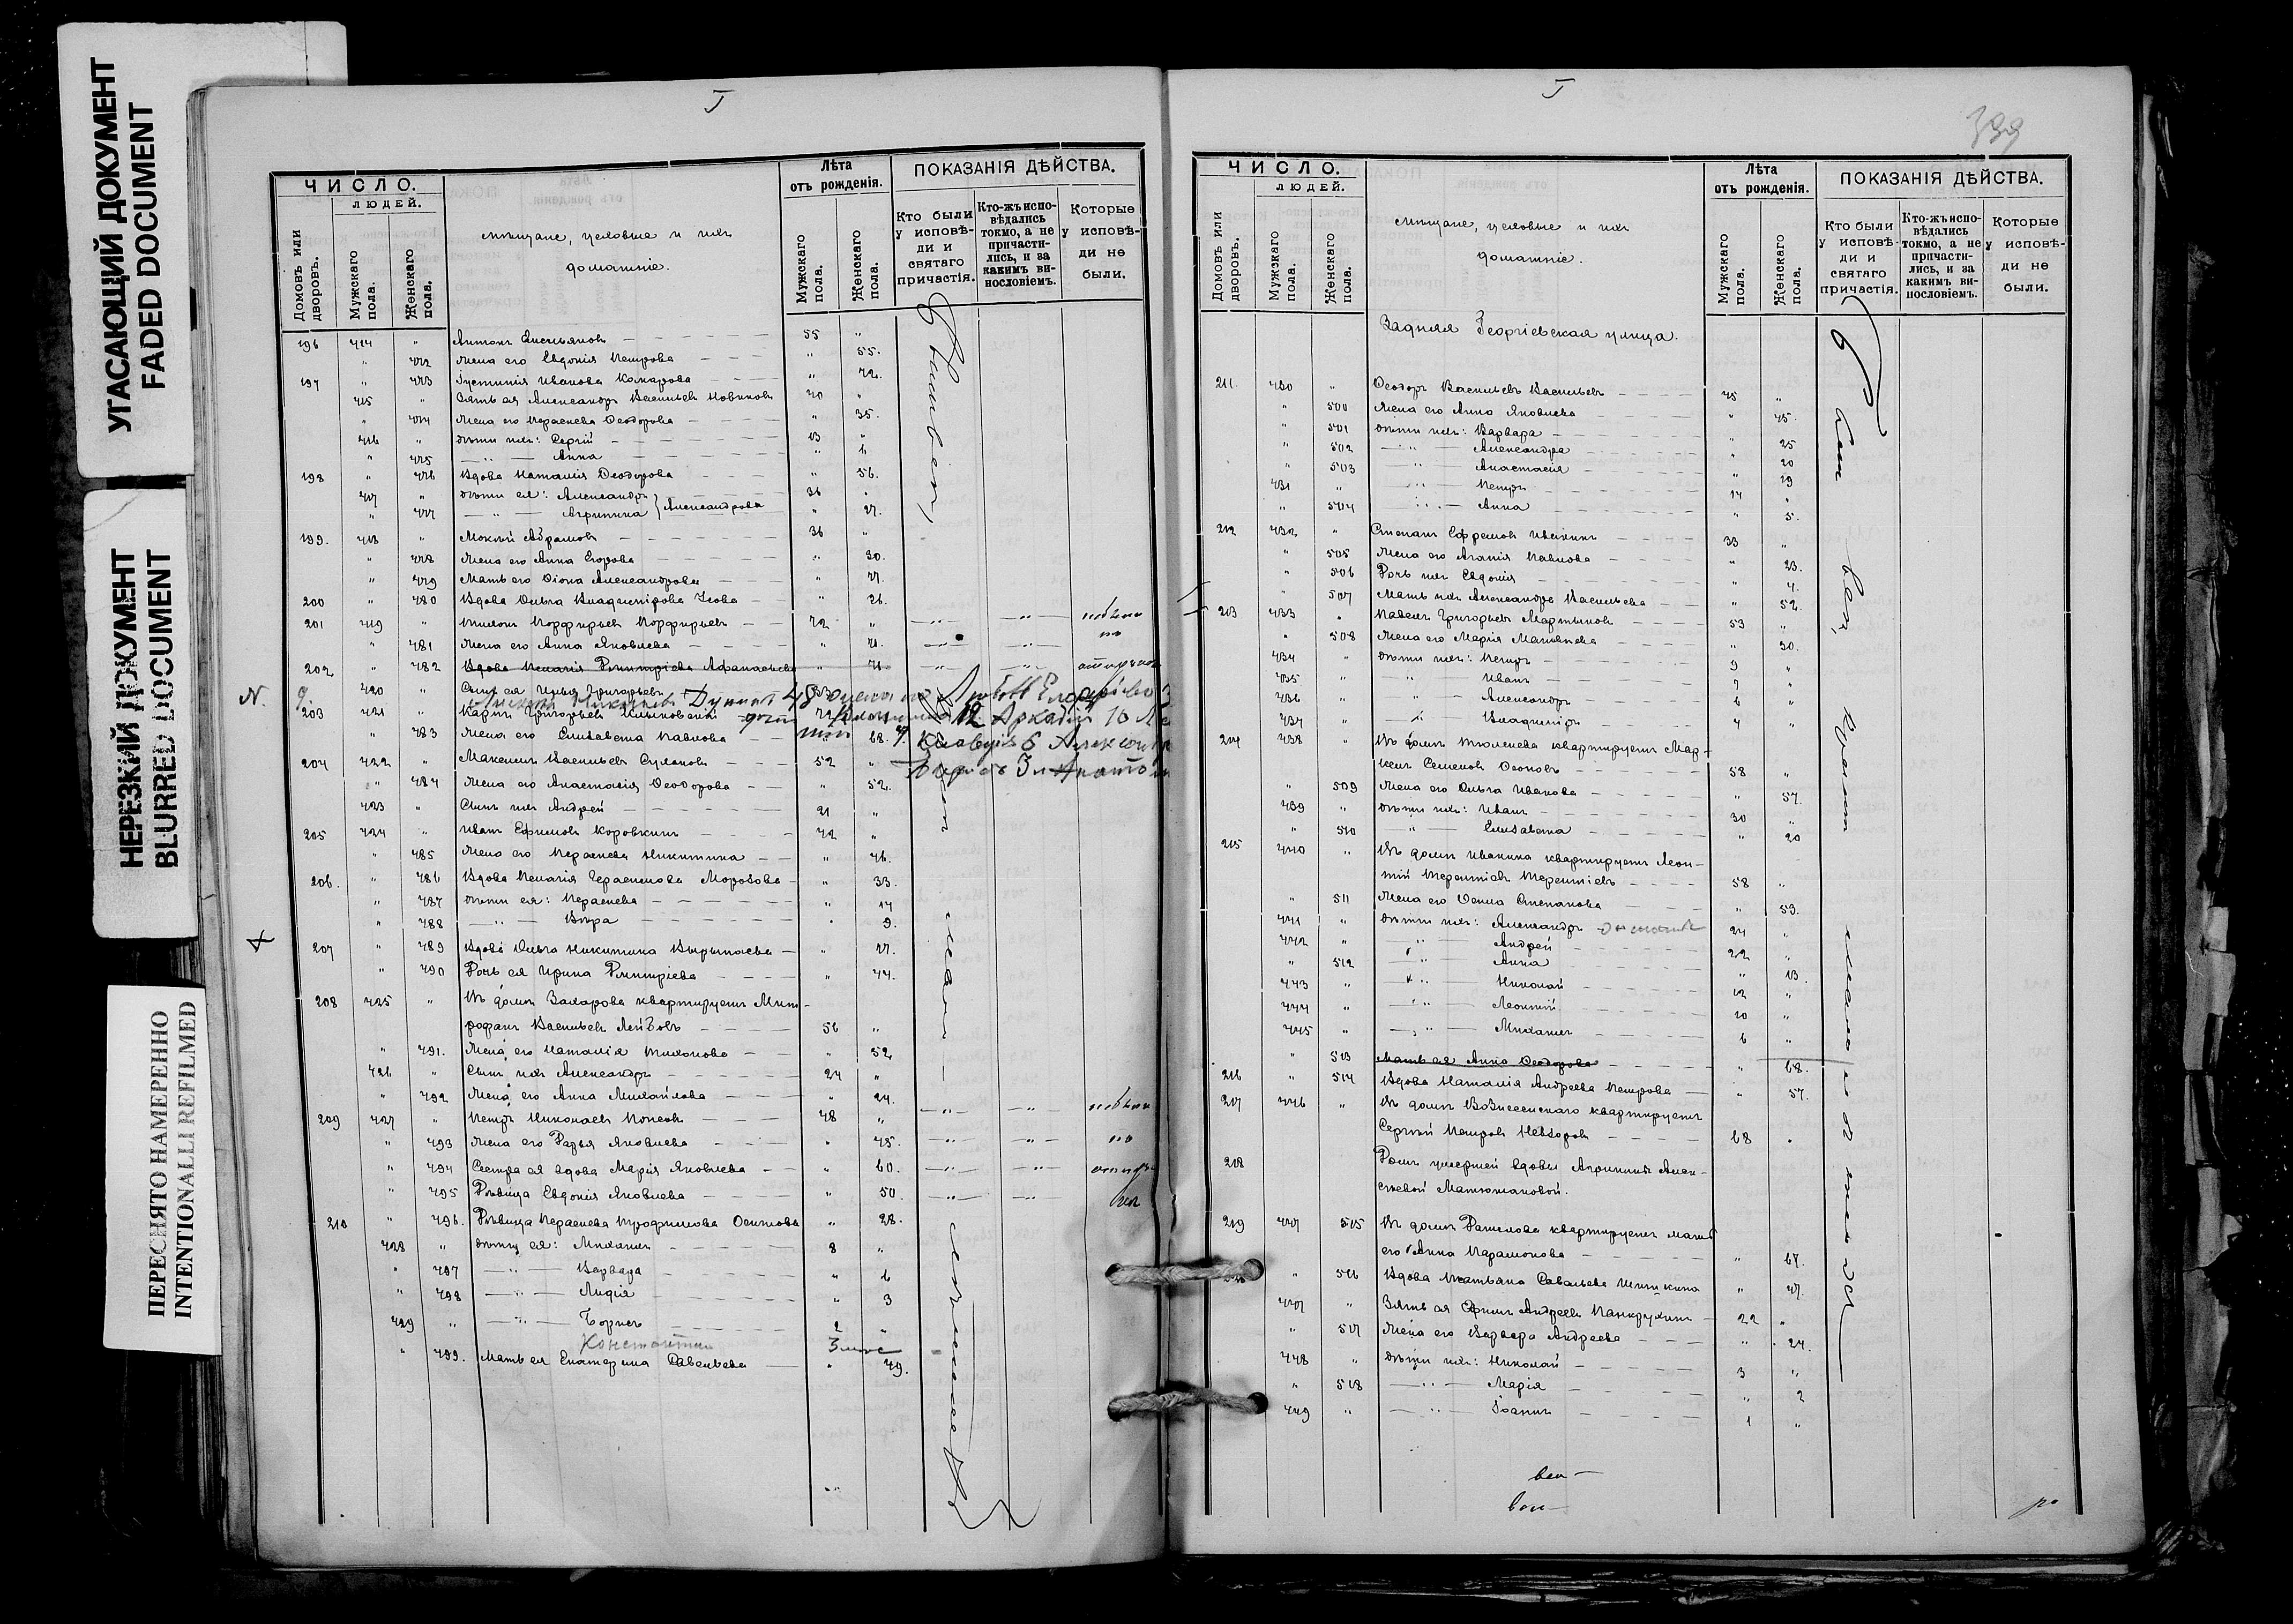 УГАСАЮЩИЙ ДОКУМЕНТ
FADED DOCUMENT
НЕРЕЗКИЙ ДОКУМЕНТ
BLURRED DOCUMENT
ПЕРЕСНЯТО НАМЕРЕННО
INTENTIONALLI REFILMED
I
ЧИСЛО.
ЛЮДЕЙ.
Домовъ или дворовъ.
Мужскаго пола.
Женскаго пола.
мѣщане, цеховые и ихъ
домашніе.
Лѣта отъ рожденія.
Мужскаго пола.
Женскаго пола.
ПОКАЗАНІЯ ДѢЙСТВА.
Кто были у исповѣди и святаго причастія.
Кто-жъ исповѣдались токмо, а не причастились, и за какимъ винословіемъ.
Которые у исповѣди не были.
196 414 " Антонъ 55 "
" 472 Жена его Евдокія Петрова " 55.
197 " 473 Іустинія Иванова Комарова " 72.
415 " Зять ея Александръ Васильевъ Новиковъ 40 "
" 474 Жена его Параскева Ѳеодорова " 35.
416 " дѣти ихъ: Сергій 13 "
" 475 Анна " 6
198 " 476 Вдова Наталія Ѳеодорова " 56.
417 " дѣти ея: Александръ 36 "
" 477 Агрипина } Александрова " 27.
199. 418 " Мокій Абрамовъ 36 "
" 478 Жена его Анна Егорова " 30.
" 479 Мать его Александрова " 77.
200 " 480 Вдова Ольга Владимірова " 26.
201 419 " Тихонъ Порфирьевъ Порфирьевъ 72 "
" 481 Жена его Анна Яковлева " 71.
202 " 482 Вдова Пелагія Димитріева Афанасьева " 71.
420 " Сынъ ея Илья Григорьевъ
203 421 " Карпъ Григорьевъ
" 483 Жена его Елизавета Павлова " 68.
204 422 " Максимъ Васильевъ 52 "
" 484 Жена его Анастасія Ѳеодорова " 52.
423 " Сынъ ихъ Андрей 21 "
205 424 " Иванъ Ефимовъ Коровкинъ 72 "
" 485 Жена его Параскева Никитина " 76.
206. " 486 Вдова Пелагія Герасимова Морозова " 33.
" 487 дѣти ея: Параскева " 14
" 488 Вѣра " 9.
207 " 489 Вдова Ольга Никитина " 77.
" 490 Дочь ея Ирина Димитріева " 44.
208 425 " Въ домѣ Захарова квартируетъ Мит-
рофанъ Васильевъ 56 "
" 491. Жена его Наталія Тихонова " 52
426 " Сынъ ихъ Александръ 24 "
" 492 Жена его Анна Михайлова " 24.
209 427 " Петръ Николаевъ 48 "
" 493 Жена его Дарья Яковлева " 45.
" 494 Сестра ея вдова Марія Яковлева " 60.
" 495 Дѣвица Евдокія Яковлева " 50.
210 " 496. Дѣвица Параскева Трофимова Осипова " 28.
428 " дѣти ея: Михаилъ 8 "
" 497 Варвара " 6
" 498 Лидія " 3
429 " Борисъ 2 "
Константин 3 мес
" 499. Мать ея Екатерина Савельева " 79.
I
399
ЧИСЛО.
ЛЮДЕЙ.
Домовъ или дворовъ.
Мужскаго пола.
Женскаго пола.
мѣщане, цеховые и ихъ
домашніе.
Лѣта отъ рожденія.
Мужскаго пола.
Женскаго пола.
ПОКАЗАНІЯ ДѢЙСТВА.
Кто были у исповѣди и святаго причастія.
Кто-жъ исповѣдались токмо, а не причастились, и за какимъ винословіемъ.
Которые у исповѣди не были.
Задняя Георгіевская улица.
211. 430 " Ѳеодоръ Васильевъ Васильевъ 45 "
" 500 Жена его Анна Яковлева " 45.
" 501 дѣти ихъ: Варвара " 25
" 502 Александра " 20
" 503 Анастасія " 19
431 " Петръ 14 "
" 504 Анна " 5.
212 432 " Степанъ Ефремовъ 33 "
" 505 Жена его Агапія Павлова " 23.
" 506 Дочь ихъ Евдокія " 4.
" 507 Мать ихъ Александра Васильева " 52.
213 433 " Павелъ Григорьевъ Мартыновъ 53 "
" 508 Жена его Марія Матвѣева " 30.
434 " дѣти ихъ: Петръ 9 "
435 " Иванъ 7 "
436 " Александръ 6 "
437 " Владиміръ 4 "
214 438 " Въ домѣ Тюленева квартируетъ Мар-
келъ Семеновъ 58 "
" 509 Жена его Ольга Иванова " 57.
439 " дѣти ихъ: Иванъ 30 "
" 510 Елизавета " 20
215 440 " Въ домѣ Ивакина квартируетъ Леон-
тій Терентіевъ Терентіевъ 58 "
" 511 Жена его Степанова " 53.
441 " дѣти ихъ: Александръ 24 "
442 " Андрей 22 "
" 512 Анна " 13.
443 " Николай 12 "
444 " Леонтій 10 "
445 " Михаилъ 6 "
" 513 Мать ея Анна Ѳеодорова " 68.
216 " 514 Вдова Наталія Андреева Петрова " 57.
217 446 " Въ домѣ Вознесенскаго квартируетъ
Сергій Петровъ Невзоровъ 68 "
218 Домъ умершей вдовы Агрипины Алек-
сѣевой Матюшковой.
219 447 515 Въ домѣ квартируетъ мать
его Анна Парамонова " 67.
" 516 Вдова Татьяна Савельева " 47.
447 " Зять ея Ефимъ Андреевъ Панкрухинъ 22 "
" 517 Жена его Варвара Андреева " 24.
448 " дѣти ихъ: Николай 3 "
" 518 Марія " 2
449 " Іоаннъ 1 "